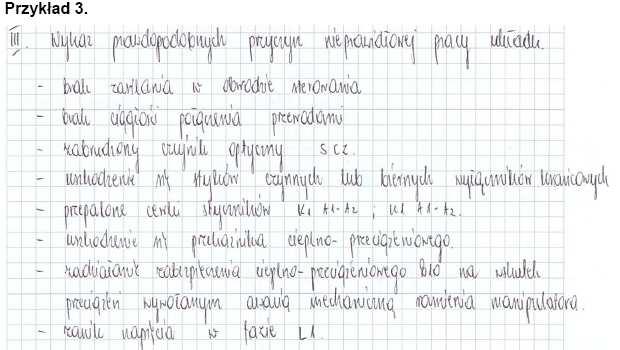 Przykład 3.
III. Wykaz prawdopodobnych przyczyn nieprawidłowej pracy układu.
- brak zasilania w obwodzie sterowania
- brak ciągłości połączenia przewodami
- zabrudzony czujnik optyczny SCZ.
- uszkodzenie się styków czynnych lub biernych wyłączników krańcowych
- przepalone cewki styczników K1 A1-A2 ; K2 A1-A2.
- uszkodzenie się przekaźnika cieplno-przeciążeniowego.
- zadziałanie zabezpieczenia cieplno-przeciążeniowego B10 na skutek
przeciążeń wywołanym awarią mechaniczną ramienia manipulatora.
- zanik napięcia w fazie L1.